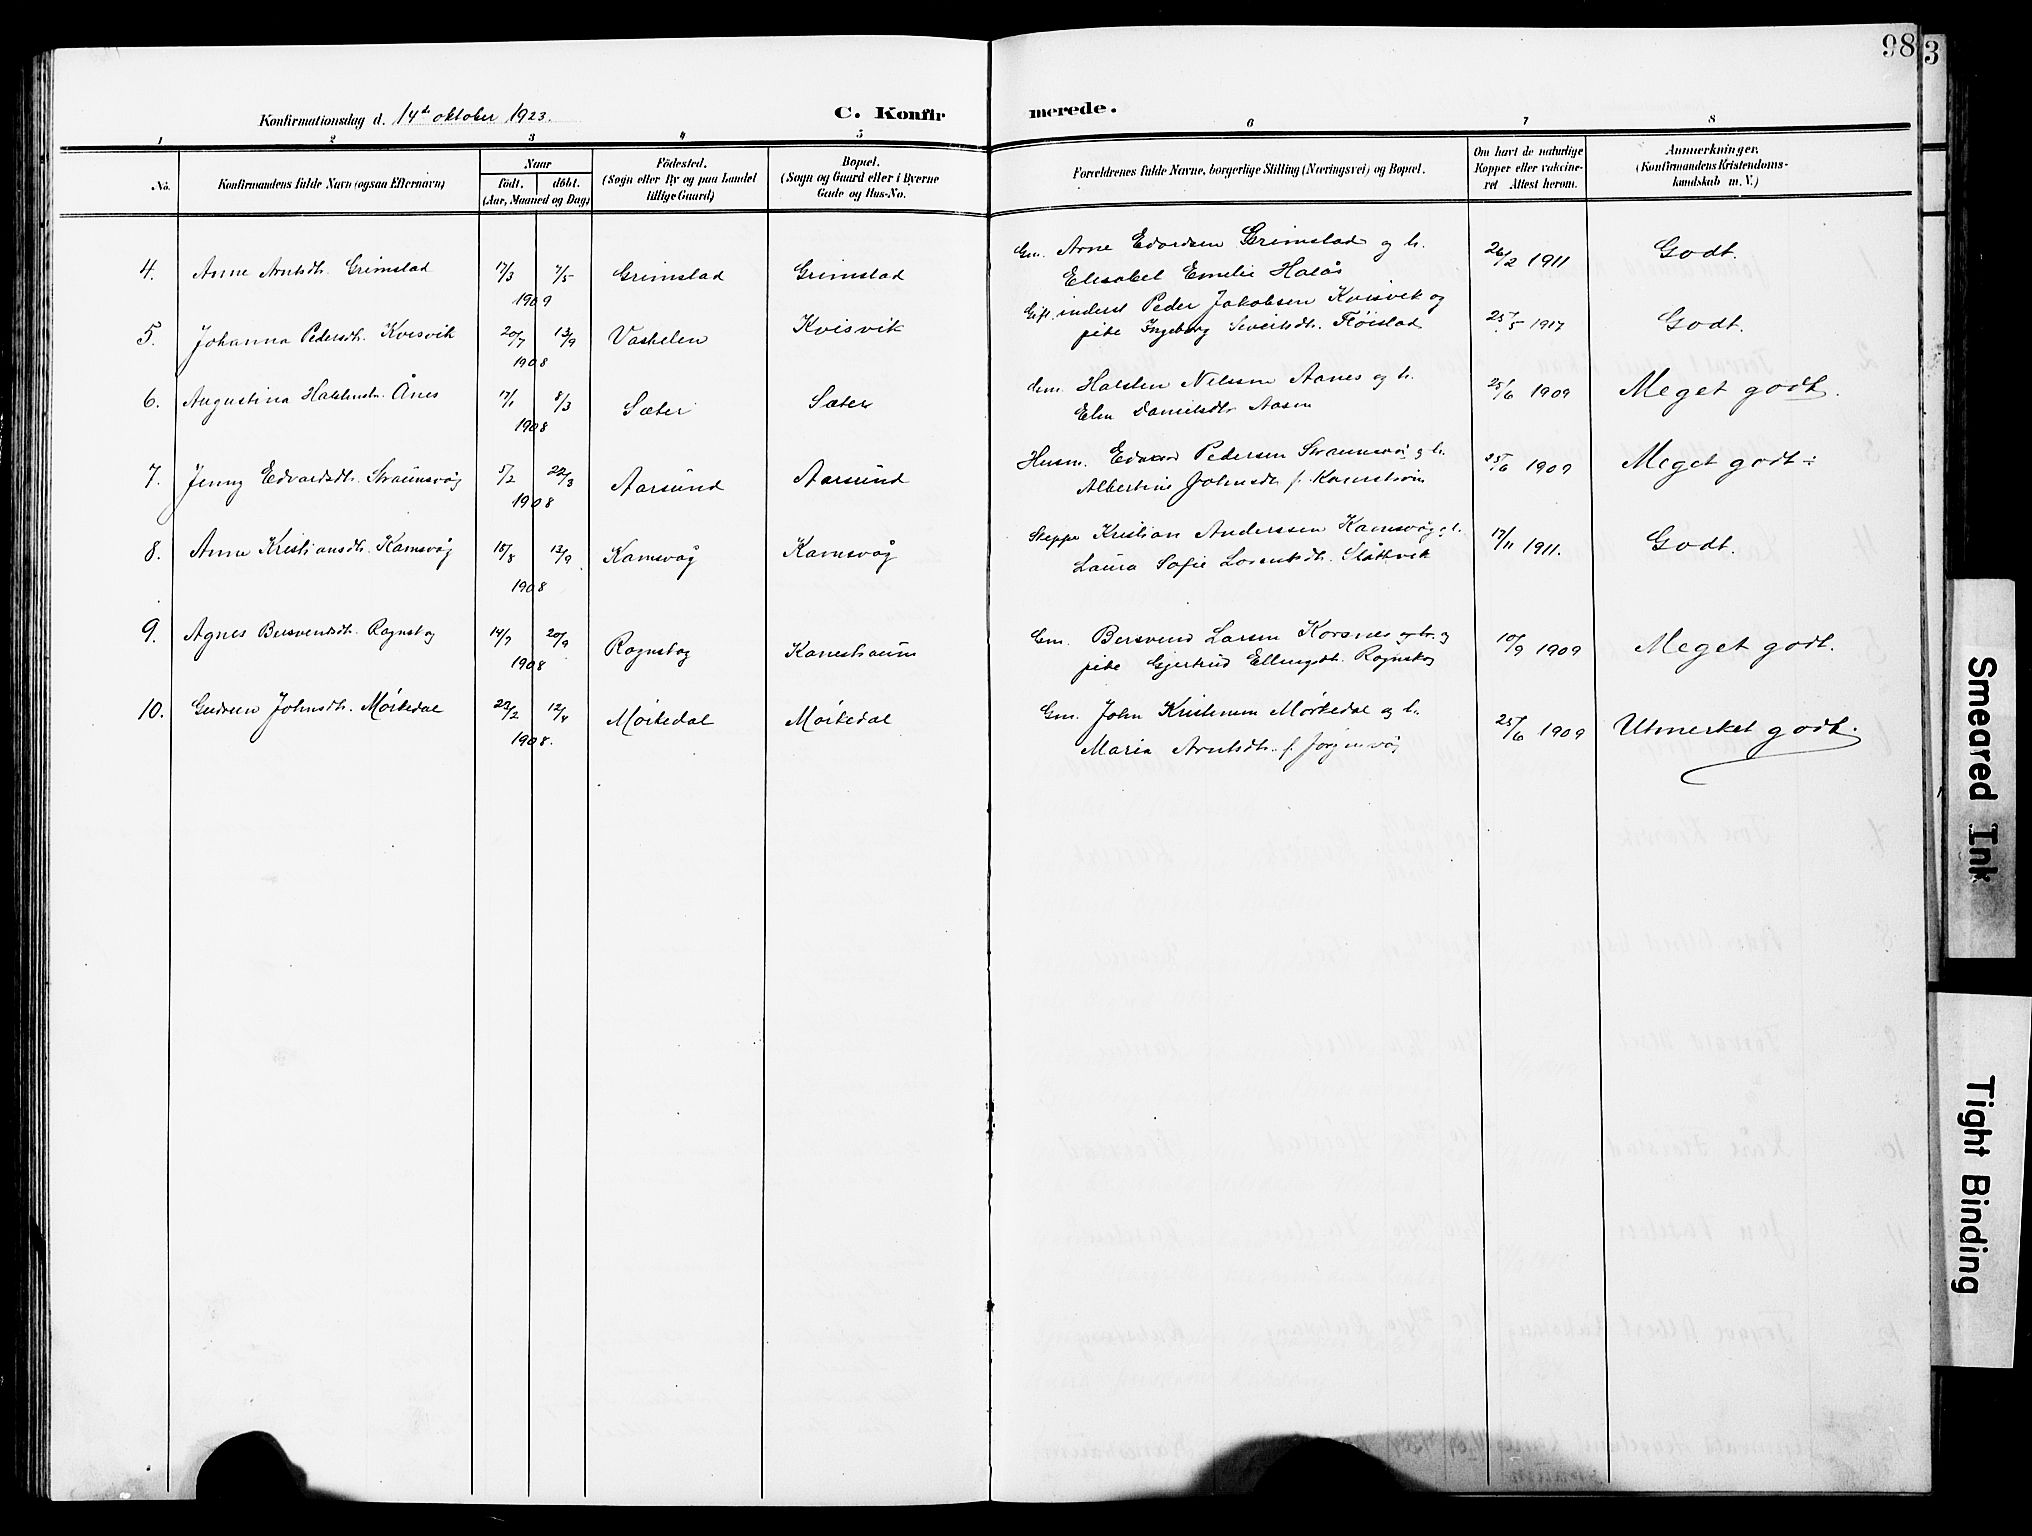 98
3
Konfirmationsdag d. 14de oktober 1923. C. Konfirmerede.
1 2 3 4 5 6 7 8
No. Konfirmandens fulde Navn (ogsaa Efternavn) Naar født. døbt. (Aar, Maaned og Dag) Fødested. (Sogn eller By og paa Landet tillige Gaard) Bopæl. (Sogn og Gaard eller i Byerne Gade og Hus-No. Forældrenes fulde Navne, borgerlige Stilling (Næringsvei) og Bopæl. Om havt de naturlige Kopper eller vakcineret Attest herom. Anmerkninger. (Konfirmandens Kristendomskundskab m. V.)
4. Anne Arnesdtr. Grimstad 17/3 7/5 1909 Grimstad Grimstad Gm. Arne Edvardsen Grimstad og h.
Elisabet Emelie Halås 26/2 1911 Godt.
5. Johanna Pedersdtr. Kvisvik 20/7 13/9 1908 Vashelen Kvisvik Gift inderst Peder Jakobsen Kvisvik og
pike Ingeborg Sivertsdtr. Fløistad 25/5 1917 Godt.
6. Augustina Halstensdtr. Ånes 17/1 8/3 1908 Sæter Sæter Gm. Halsten Nilssen Aanes og h.
Elen Danielsdtr. Aasen 25/6 1909 Meget godt.
7. Jenny Edvardsdtr. Straumsvåg 5/2 22/3 1908 Aarsund Aarsund Husm. Edvard Pedersen Straumsvåg og h.
Albertine Johnsdtr. f. 25/6 1909 Meget godt.
8. Anne Kristiansdtr. Kamsvåg 18/8 13/9 1908 Kamsvåg Kamsvåg Kristian Anderssen Kamsvåg og h.
Laura Sofie Lorentsdtr. Slåttvik 17/11 1911. Godt.
9. Agnes Bersvendsdtr. Rognskog 14/7 20/9 1908 Rognskog Kanestraum Gm. Bersvend Larsen Korsnes og
pike Gjertrud Ellingsdtr. Rognskog 10/9 1909 Meget godt.
10. Gudrun Johnsdtr. Mørkedal 22/2 12/4 1908. Mørkedal Mørkedal Gm. John Kristensen Mørkedal og h.
Maria Arntsdtr. f. Jørgenvåg 25/6 1909 Utmerket godt.
Smeared Ink
Tight Binding